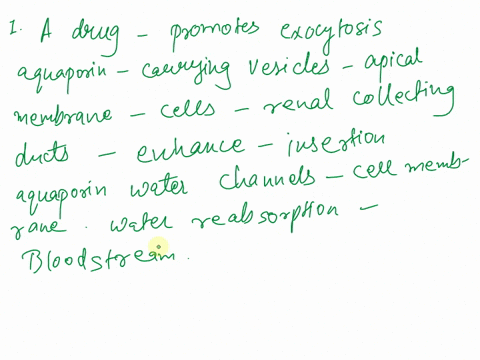 1. A drug - promotes exocytosis
aquaporin - carrying vesicles - apical
membrane - cells - renal collecting
ducts - enhance - insertion
aquaporin water channels - cell memb-
rane. water reabsorption -
Bloodstream.